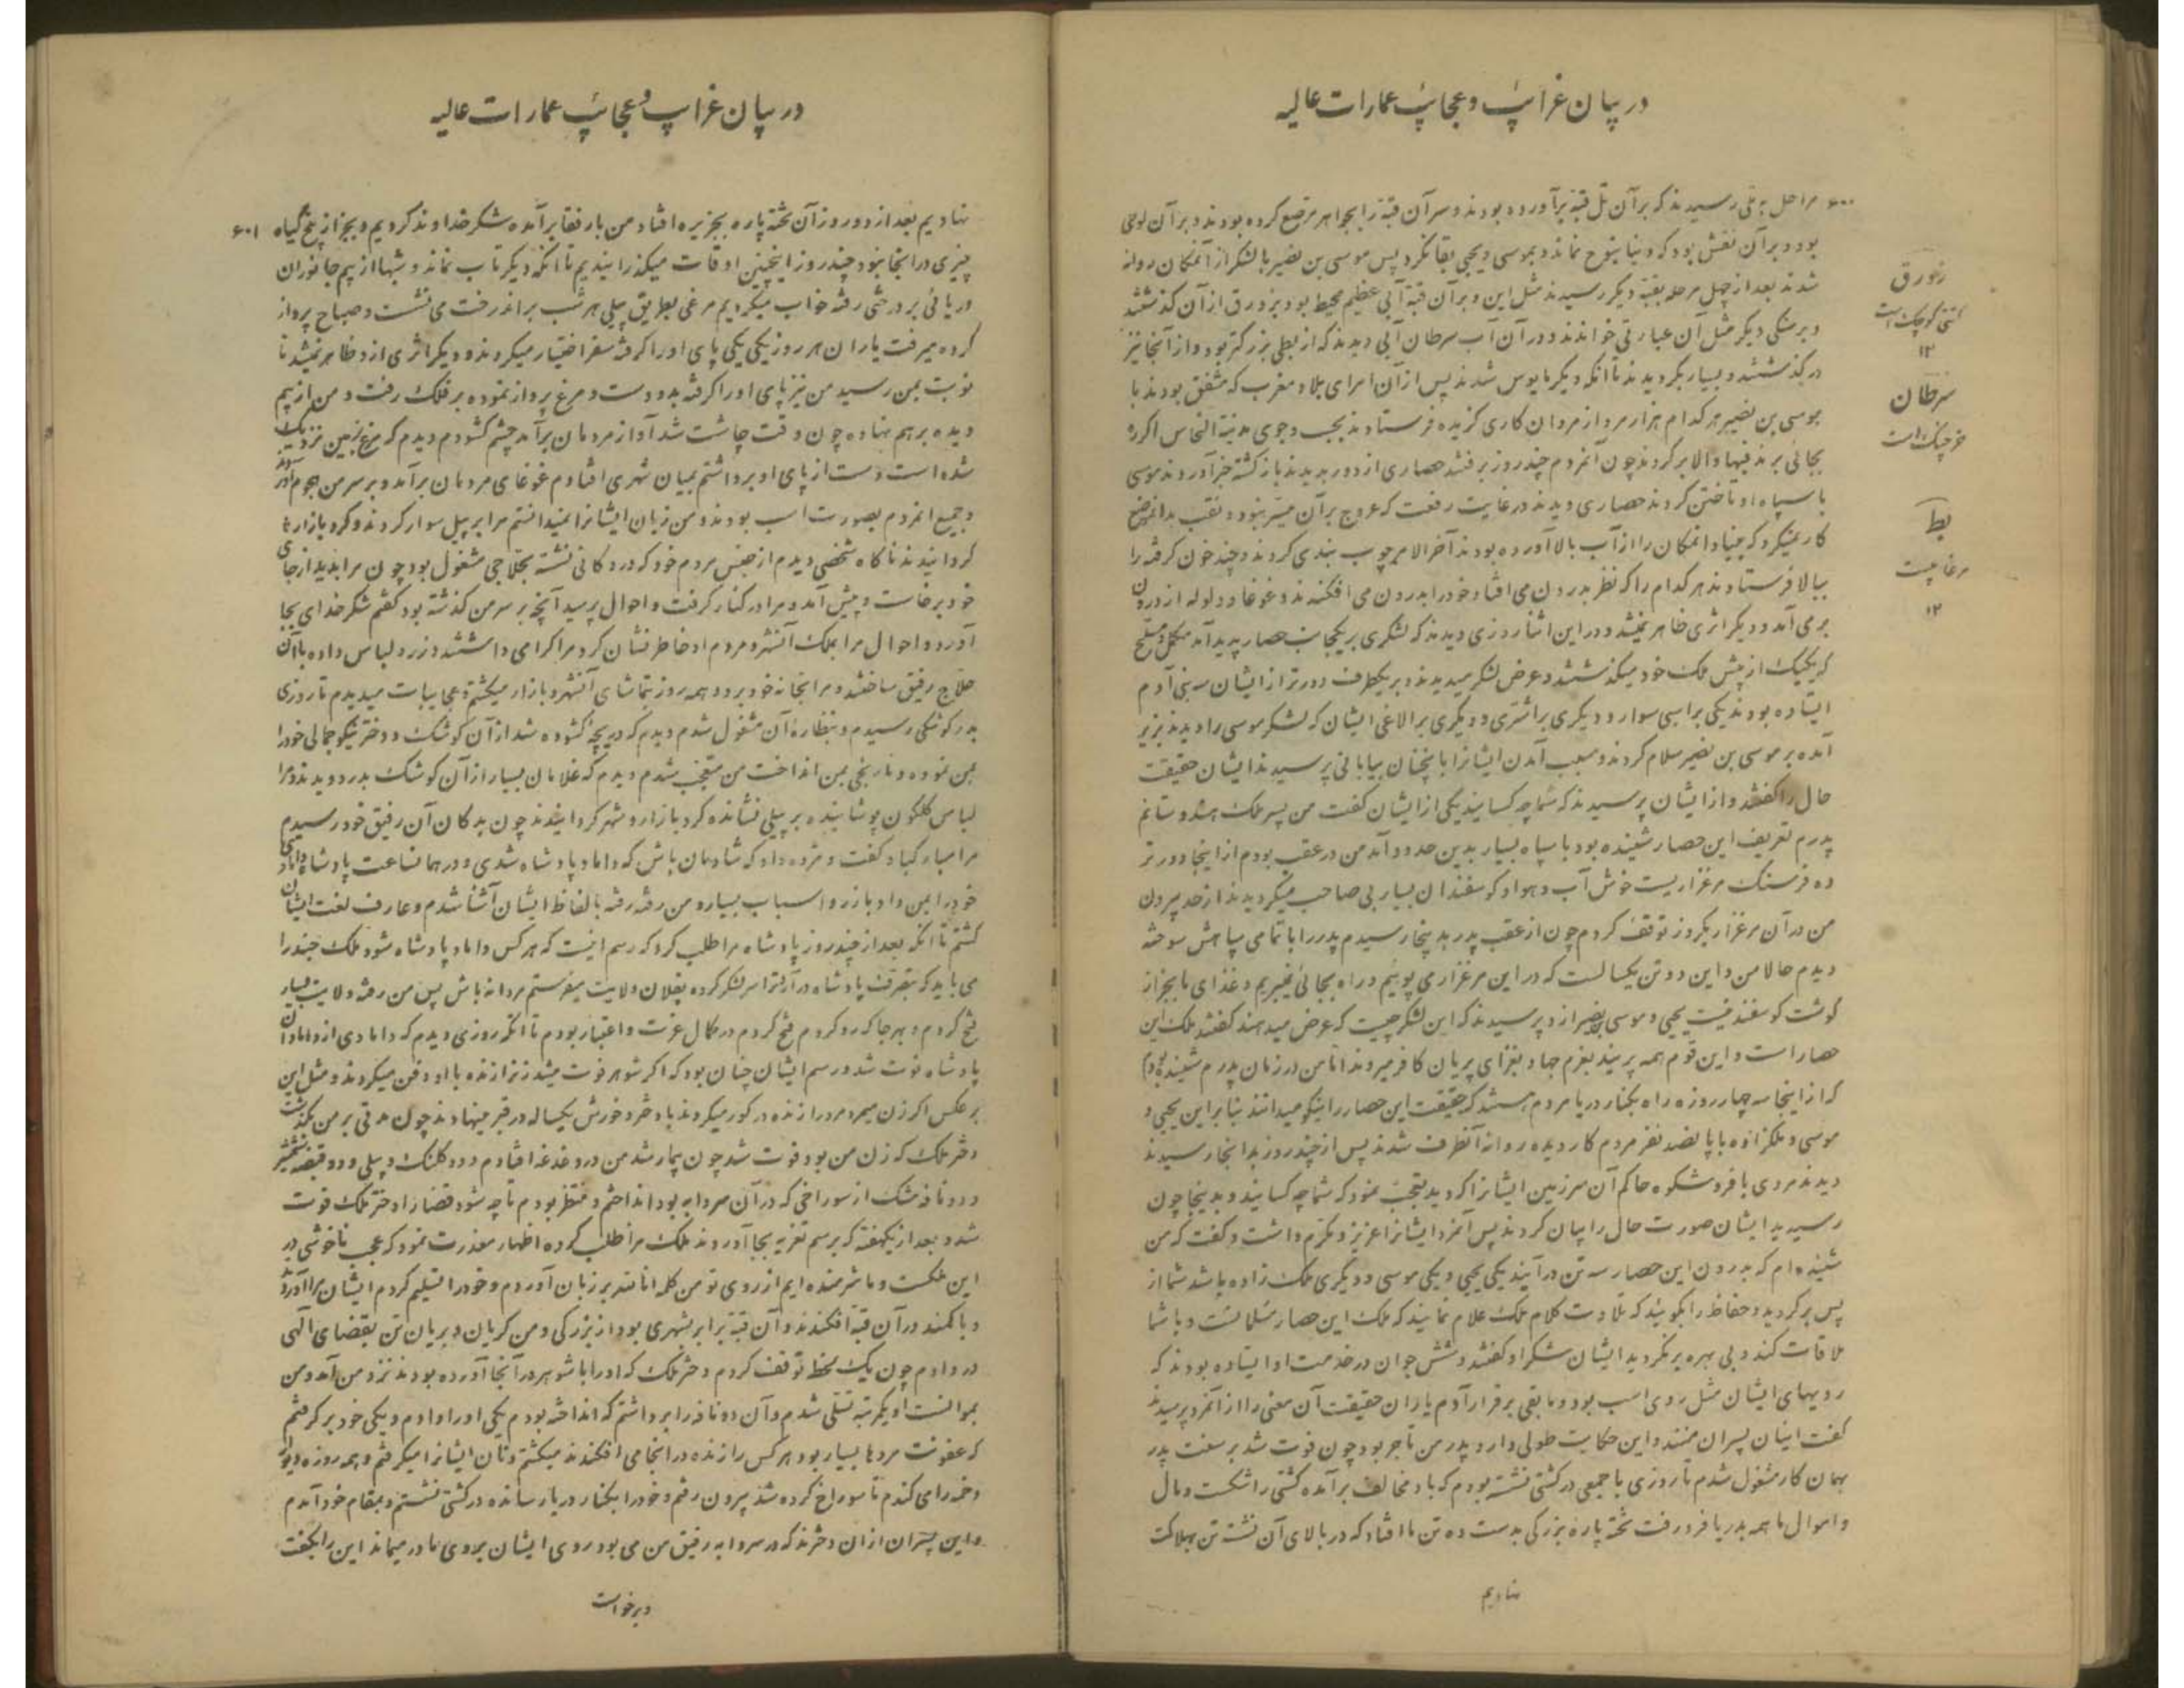 در بیان غرائب و عجائب عمارات عالیه
۶۰۰ مراحل به تلی رسیدند که بر آن تل قبهٔ برآورده بودند و سر آن قبه را بجواهر مرصع کرده بودند و بر آن لوحی
بود و بر آن نقش بود که دنیا بنوح نماند و بموسی و یحیی بقا نکرد پس موسی بن نصیر با لشکر از آنمکان روانه
شدند بعد از چهل مرحله بقبهٔ دیگر رسیدند مثل این و بر آن قبه آبی عظیم محیط بود بزورق از آن گذشتند
و بر سنگی دیگر مثل آن عبارتی خواندند و در آن آب سرطان آبی دیدند که از بطی بزرگتر بود و از آنجا نیز
درگذشتند و بسیار بگردیدند تا آنکه دیگر مایوس شدند پس از آن امرای بلاد مغرب که متفق بودند با
موسی بن نصیر هر کدام هزار مرد از مردان کاری گزیده فرستادند بجست و جوی مدینة النحاس اگر راه
بجائی برند فبها و الا برگردند چون آنمردم چند روز برفتند حصاری از دور بدیدند بازگشته خبر آوردند موسی
با سپاه او تاختن کردند حصاری دیدند در غایت رفعت که عروج بر آن میسر نبود و نقب بدانموضع
کار نمیکرد که بنیاد آنمکان را از آب بالا آورده بودند آخر الامر چوب بندی کردند و چند خون گرفته را
ببالا فرستادند هر کدام را که نظر بدرون می افتاد خود را بدرون می افکندند و غوغا و ولوله از درون
برمی آمد و دیگر اثری ظاهر نمیشد و در این اثنا روزی دیدند که لشکری بر یکجانب حصار پدید آمد مکمل و مسلح
که یکیک از پیش ملک خود میگذشتند و عرض لشکر میدیدند و بر یکطرف دورتر از ایشان سه بنی آدم
ایستاده بودند یکی بر اسبی سوار و دیگری بر اشتری و دیگری بر الاغی ایشان که لشکر موسی را دیدند بزیر
آمده بر موسی بن نصیر سلام کردند و سبب آمدن ایشانرا بآنچنان بیابانی پرسیدند ایشان حقیقت
حال را گفتند و از ایشان پرسیدند که شما چه کسانید یکی از ایشان گفت من پسر ملک هندوستانم
پدرم تعریف این حصار شنیده بود با سپاه بسیار بدین حدود آمد من در عقب بودم از اینجا دورتر
ده فرسنگ مرغزاریست خوش آب و هوا و گوسفندان بسیار بی صاحب میگردیدند از حد بیرون
من در آن مرغزار یکروز توقف کردم چون از عقب پدر بدینجا رسیدم پدر را با تمامی سپاهش سوخته
دیدم حالا من و این دو تن یکسالست که در این مرغزار می پوئیم و راه بجائی نمیبریم و غذای ما بجز از
گوشت گوسفند نیست یحیی و موسی بن نصیر از و پرسیدند که این لشکر چیست که عرض میدهند گفتند ملک این
حصار است و این قوم همه پریند بعزم جهاد بغزای پریان کافر میروند اما من در زمان پدرم شنیده بودم
که از اینجا سه چهار روزه راه بکنار دریا مردم هستند که حقیقت این حصار را نیکو میدانند بنا بر این یحیی و
موسی و ملکزاده با پانصد نفر مردم کار دیده روانهٔ آنطرف شدند پس از چند روز بدانجا رسیدند
دیدند مردی با فر و شکوه حاکم آن سرزمین ایشانرا که دید تعجب نمود که شما چه کسانید و بدینجا چون
رسیدید ایشان صورت حال را بیان کردند پس آنمرد ایشانرا عزیز و مکرم داشت و گفت که من
شنیده ام که بدرون این حصار سه تن در آیند یکی یحیی و یکی موسی و دیگری ملک زاده باشد شما از
پس برگردید و حفاظ را بگوئید که تلاوت کلام ملک علام نمایند که ملک این حصار مسلمانست و با شما
ملاقات کند و بی بهره برنگردید ایشان شکر او گفتند و شش جوان در خدمت او ایستاده بودند که
رویهای ایشان مثل روی اسب بود و مابقی برقرار آدم یاران حقیقت آن معنی را از آنمرد پرسیدند
گفت اینان پسران منند و این حکایت طولی دارد پدر من تاجر بود چون فوت شد بر سنت پدر
بهمان کار مشغول شدم تا روزی با جمعی در کشتی نشسته بودم که باد مخالف برآمده کشتی را شکست و مال
و اموال ما همه بدریا فرو رفت تخته پاره بزرگی بدست ده تن ما افتاد که در بالای آن نشسته تن بهلاکت
نهادیم
زورق
کشتی کوچک است
۱۲
سرطان
خرچنگ است
بط
مرغابیست
۱۲
در بیان غرائب و عجائب عمارات عالیه
نهادیم بعد از دو روز آن تخته پاره بجزیره افتاد من با رفقا برآمده شکر خداوند کردیم و بجز از بیخ گیاه ۶۰۱
چیزی در آنجا نبود چند روز اینچنین اوقات میگذرانیدیم تا آنکه دیگر تاب نماند و شبها از بیم جانوران
دریائی بر درختی رفته خواب میکردیم مرغی بطریق پیلی هر شب بر اندرخت می نشست و صباح پرواز
کرده میرفت یاران هر روز یکی یکی پای او را گرفته سفر اختیار میکردند و دیگر اثری از و ظاهر نمیشد تا
نوبت بمن رسید من نیز پای او را گرفته بدو دست و مرغ پرواز نموده بر فلک رفت و من از بیم
دیده بر هم نهاده چون وقت چاشت شد آواز مردمان برآمد چشم گشودم دیدم که مرغ بزمین نزدیک
شده است دست از پای او برداشتم بمیان شهری افتادم غوغای مردمان برآمد و بر سر من هجوم آوردند
و جمیع آنمردم بصورت اسب بودند و من زبان ایشانرا نمیدانستم مرا بر پیل سوار کردند و گرد بازارها
گردانیدند ناگاه شخصی دیدم از جنس مردم خود که در دکانی نشسته بحلاجی مشغول بود چون مرا بدید از جای
خود برخاست و پیش آمد و مرا در کنار گرفت و احوال پرسید آنچه بر سر من گذشته بود گفتم شکر خدای بجا
آورد و احوال مرا بملک آنشهر و مردم او خاطر نشان کرد مرا گرامی داشتند و زر و لباس داده با آن
حلاج رفیق ساختند و مرا بخانه خود برد و همه روز بتماشای آنشهر و بازار میگشتم و عجایبات میدیدم تا روزی
بدر کوشکی رسیدم و بنظارهٔ آن مشغول شدم دیدم که دریچهٔ گشوده شد از آن کوشک و دختر نیکو جمالی خود را
بمن نموده و نارنجی بمن انداخت من متعجب شدم دیدم که غلامان بسیار از آن کوشک بدر دویدند و مرا
لباس گلگون پوشانیده بر پیلی نشانده گرد بازار و شهر گردانیدند چون بدکان آن رفیق خود رسیدم
مرا مبارکباد گفت و مژده داد که شادمان باش که داماد پادشاه شدی و در همان ساعت پادشاه دامادی
خود را بمن داد با زر و اسباب بسیار و من رفته رفته بالفاظ ایشان آشنا شدم و عارف لغت ایشان
گشتم تا آنکه بعد از چند روز پادشاه مرا طلب کرد که رسم اینست که هر کس داماد پادشاه شود ملک چند را
می باید که بتصرف پادشاه درآرد ترا سر لشکر کرده بفلان ولایت میفرستم مردانه باش پس من رفته ولایت بسیار
فتح کردم و بهر جا که رو کردم فتح کردم در کمال عزت و اعتبار بودم تا آنکه روزی دیدم که دامادی از دامادان
پادشاه فوت شد و رسم ایشان چنان بود که اگر شوهر فوت میشد زنرا زنده با او دفن میکردند و مثل این
بر عکس اگر زن میمرد مرد را زنده در گور میکردند با دختر و خورش یکساله در قبر مینهادند چون مدتی بر من بگذشت
دختر ملک که زن من بود فوت شد چون بیمار شد من در دغدغه افتادم و دو کلنگ و بیلی و دو قبضه شمشیر
و دو نافه مشک از سوراخی که در آن سردابه بود انداختم و منتظر بودم تا چه شود قضا را دختر ملک فوت
شد و بعد از یکهفته که برسم تعزیه بجا آوردند ملک مرا طلب کرده اظهار معذرت نمود که عجب ناخوشی در
این ملکست و ما شرمنده ایم از روی تو من کلمه انا لله بر زبان آوردم و خود را تسلیم کردم ایشان مرا آوردند
و با کمند در آن قبه افکندند و آن قبه برابر بشهری بود از بزرگی و من گریان و بریان تن بقضای الهی
در دادم چون یک لحظه توقف کردم دختر ملک که او را با شوهر در آنجا آورده بودند نزد من آمد و من
بموانست او یکمرتبه تسلی شدم و آن دو نافه را برداشتم که انداخته بودم یکی او را دادم و یکی خود برگرفتم
که عفونت مردها بسیار بود هر کس را زنده در آنجا می افکندند میکشتم و نان ایشانرا میگرفتم و همه روزه دیوار
دخمه را می کندم تا سوراخ کرده شد بیرون رفتم و خود را بکنار دریا رسانده در کشتی نشستم و بمقام خود آمدم
و این پسران از ان دخترند که در سردابه رفیق من می بود روی ایشان بروی مادر میماند این را بگفت
و برخواست